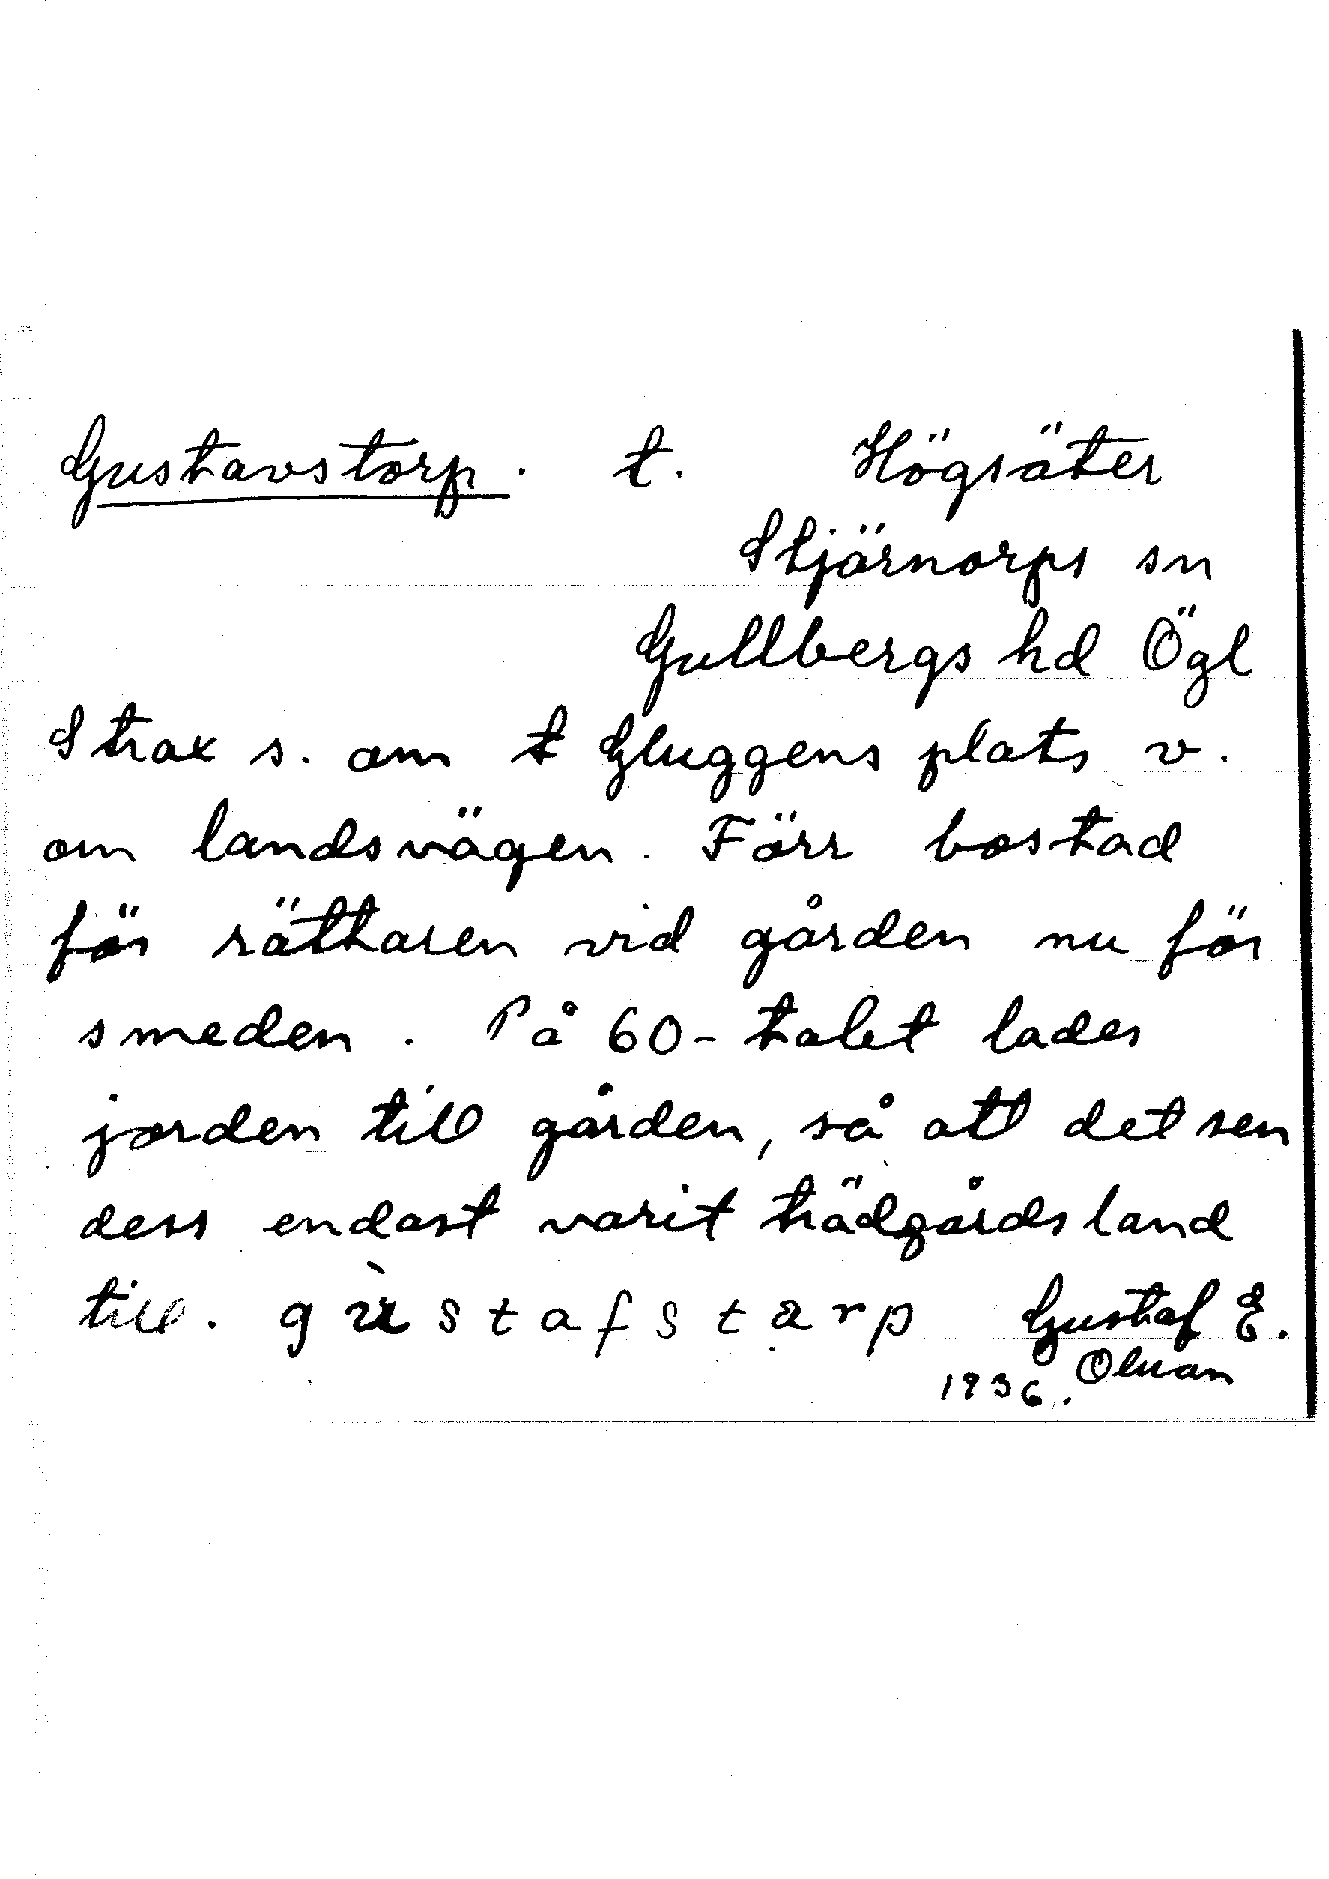 Gustavstorp. t. Högsäter
Stjärnorps sn
Gullbergs hd Ögl
Strax s. om t Gluggens plats v.
om landsvägen. Förr bostad
för rättaren vid gården nu för
smeden. På 60-talet lades
jorden till gården, så att det sen
dess endast varit trädgårdsland
till. gùstafstarp Gustaf E.
1936. Olsson